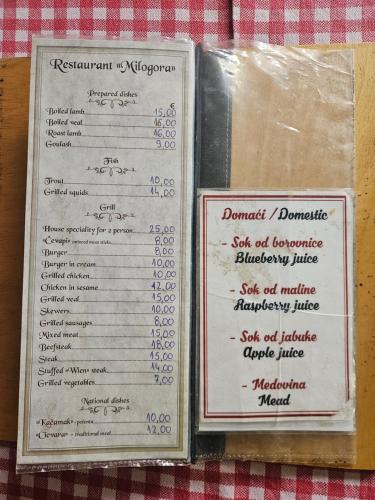 Restaurant "Milogora"
Prepared dishes
€
Boiled lamb 15,00
Boiled veal 16,00
Roast lamb 16,00
Goulash 9,00
Fish
Trout 10,00
Grilled squids 14,00
Grill
House speciality for 2 person 25,00
«Čevapi» minced meat sticks 8,00
Burger 8,00
Burger in cream 10,00
Grilled chicken 10,00
Chicken in sesame 12,00
Grilled veal 15,00
Skewers 10,00
Grilled sausages 8,00
Mixed meat 15,00
Beefsteak 18,00
Steak 15,00
Stuffed «Wien» steak 14,00
Grilled vegetables 7,00
National dishes
«Kačamak» -polenta 10,00
«Cicvara» - traditional meal 12,00
Domaći / Domestic
- Sok od borovnice
Blueberry juice
- Sok od maline
Raspberry juice
- Sok od jabuke
Apple juice
- Medovina
Mead